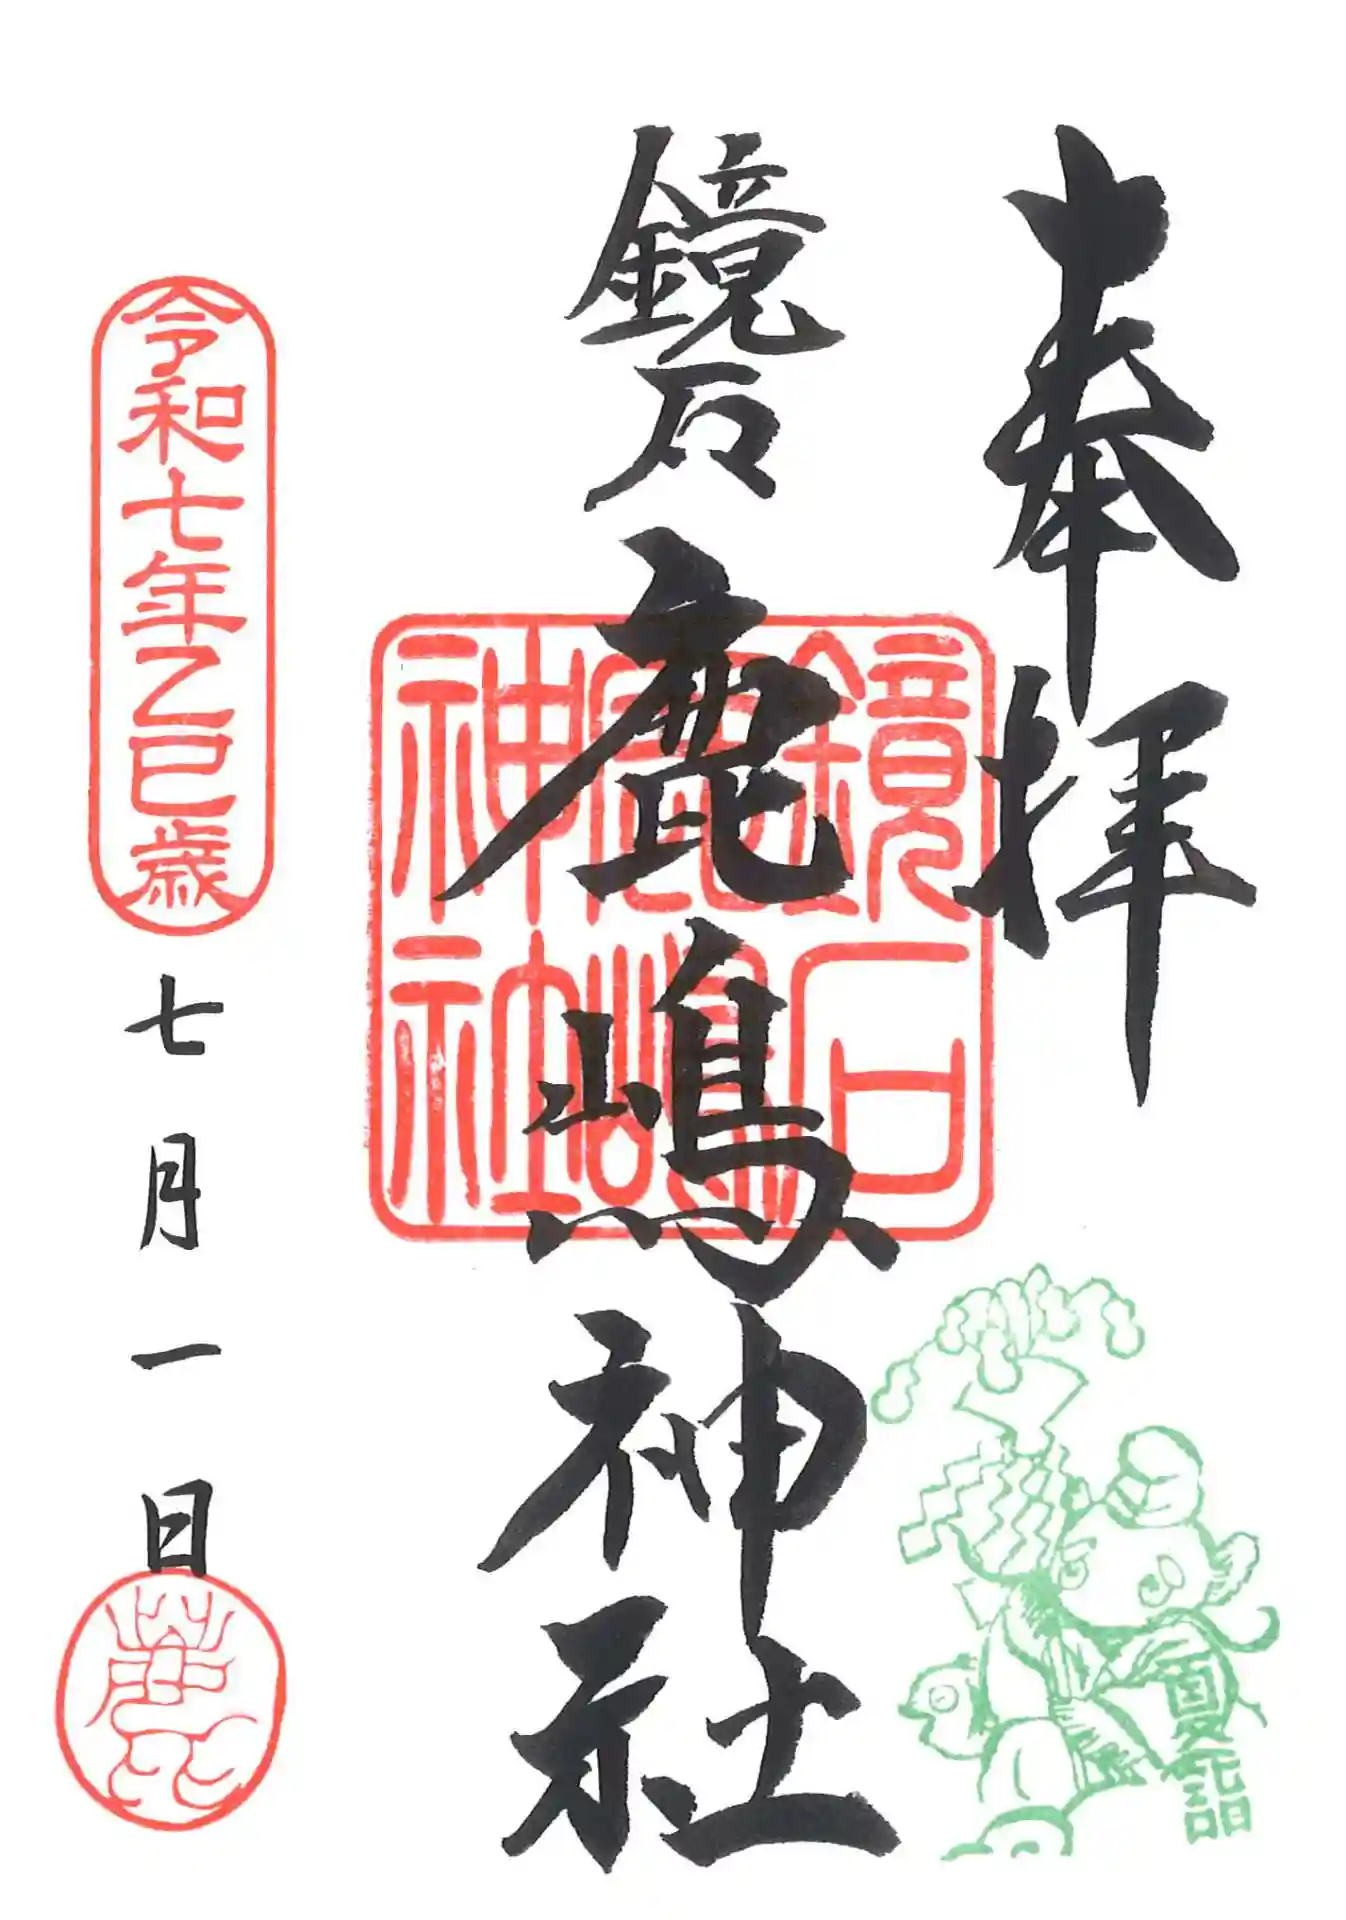 奉拝
鏡石
鹿嶋神社
鏡石
鹿嶋
神社
令和七年乙巳歳
七月一日
夏詣